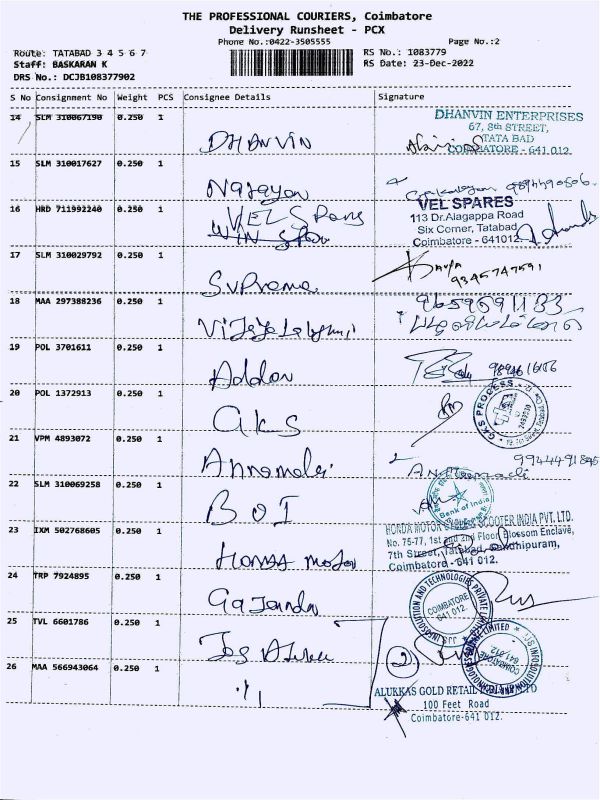 THE PROFESSIONAL COURIERS, Coimbatore
Delivery Runsheet - PCX
Phone No.:0422-3505555
Page No.:2
Route: TATABAD 3 4 5 6 7
RS No.: 1083779
Staff: BASKARAN K
RS Date: 23-Dec-2022
DRS No.: DCJB108377902
S No Consignment No Weight PCS Consignee Details Signature
14 SLM 310067190 0.250 1 DHANVIN
DHANVIN ENTERPRISES
67, 8th STREET,
TATA BAD
COIMBATORE - 641 012.
15 SLM 310017627 0.250 1 Narayan
16 HRD 711992240 0.250 1 VEL Spares
VEL SPARES
113 Dr.Alagappa Road
Six Corner, Tatabad
Coimbatore - 641012.
17 SLM 310029792 0.250 1 Suprema
9345747591
18 MAA 297388236 0.250 1
9659691133
19 POL 3701611 0.250 1 Addon
20 POL 1372913 0.250 1 GKS
GKS PROCESS
21 VPM 4893072 0.250 1 Annamalai
9944491845
22 SLM 310069258 0.250 1 BOI
Bank of India
23 IXM 502768605 0.250 1 Honda Motor
HONDA MOTOR SCOOTER INDIA PVT. LTD.
No. 75-77, 1st and 2nd Floor, Blossom Enclave,
7th Street, Tatabad, Gandhipuram,
Coimbatore - 641 012.
24 TRP 7924895 0.250 1 Gajendra
COIMBATORE
641 012.
25 TVL 6601786 0.250 1 Jos
26 MAA 566943064 0.250 1
2
COIMBATORE
641 012
ALUKKAS GOLD RETAIL
100 Feet Road
Coimbatore-641 012.